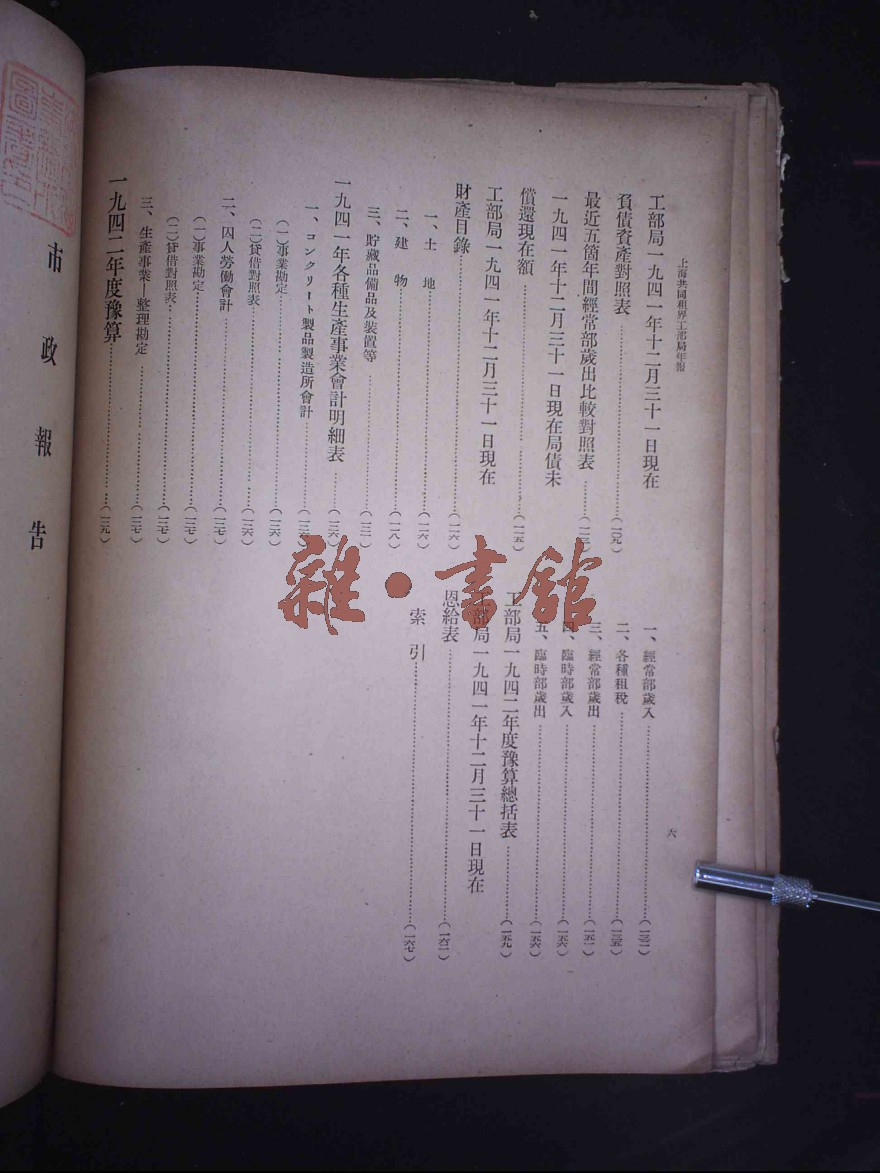 上海共同租界工部局年報
工部局一九四一年十二月三十一日現在
負債資產對照表……(一〇九)
最近五箇年間經常部歲出比較對照表……
一九四一年十二月三十一日現在局債未
償還現在額……(一一五)
工部局一九四一年十二月三十一日現在
財產目錄……(一一六)
一、土地……(一一六)
二、建物……(一一八)
三、貯藏品備品及裝置等……
一九四一年各種生產事業會計明細表……(一二六)
一、コンクリート製品製造所會計……
(一)事業勘定……(一二六)
(二)貸借對照表……(一二六)
二、囚人勞働會計……(一二七)
(一)事業勘定……(一二七)
(二)貸借對照表……(一二七)
三、生產事業—整理勘定……(一二七)
一九四二年度豫算……(一二九)
一、經常部歲入……(一三一)
二、各種租稅……(一三五)
三、經常部歲出……(一五一)
四、臨時部歲入……(一五六)
五、臨時部歲出……(一五六)
工部局一九四二年度豫算總括表……(一五九)
工部局一九四一年十二月三十一日現在
恩給表……(一六一)
索引……(一六七)
六
市政報告
雜·書館